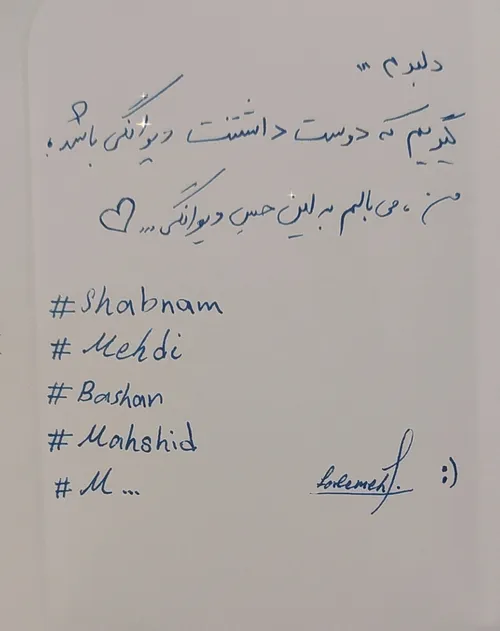 دلبرم ...
گیریم که دوست داشتنت دیوانگی باشد،
من، می بالم به این حسِ دیوانگی...♡
#Shabnam
#Mehdi
#Bashan
#Mahshid
#M...
:)